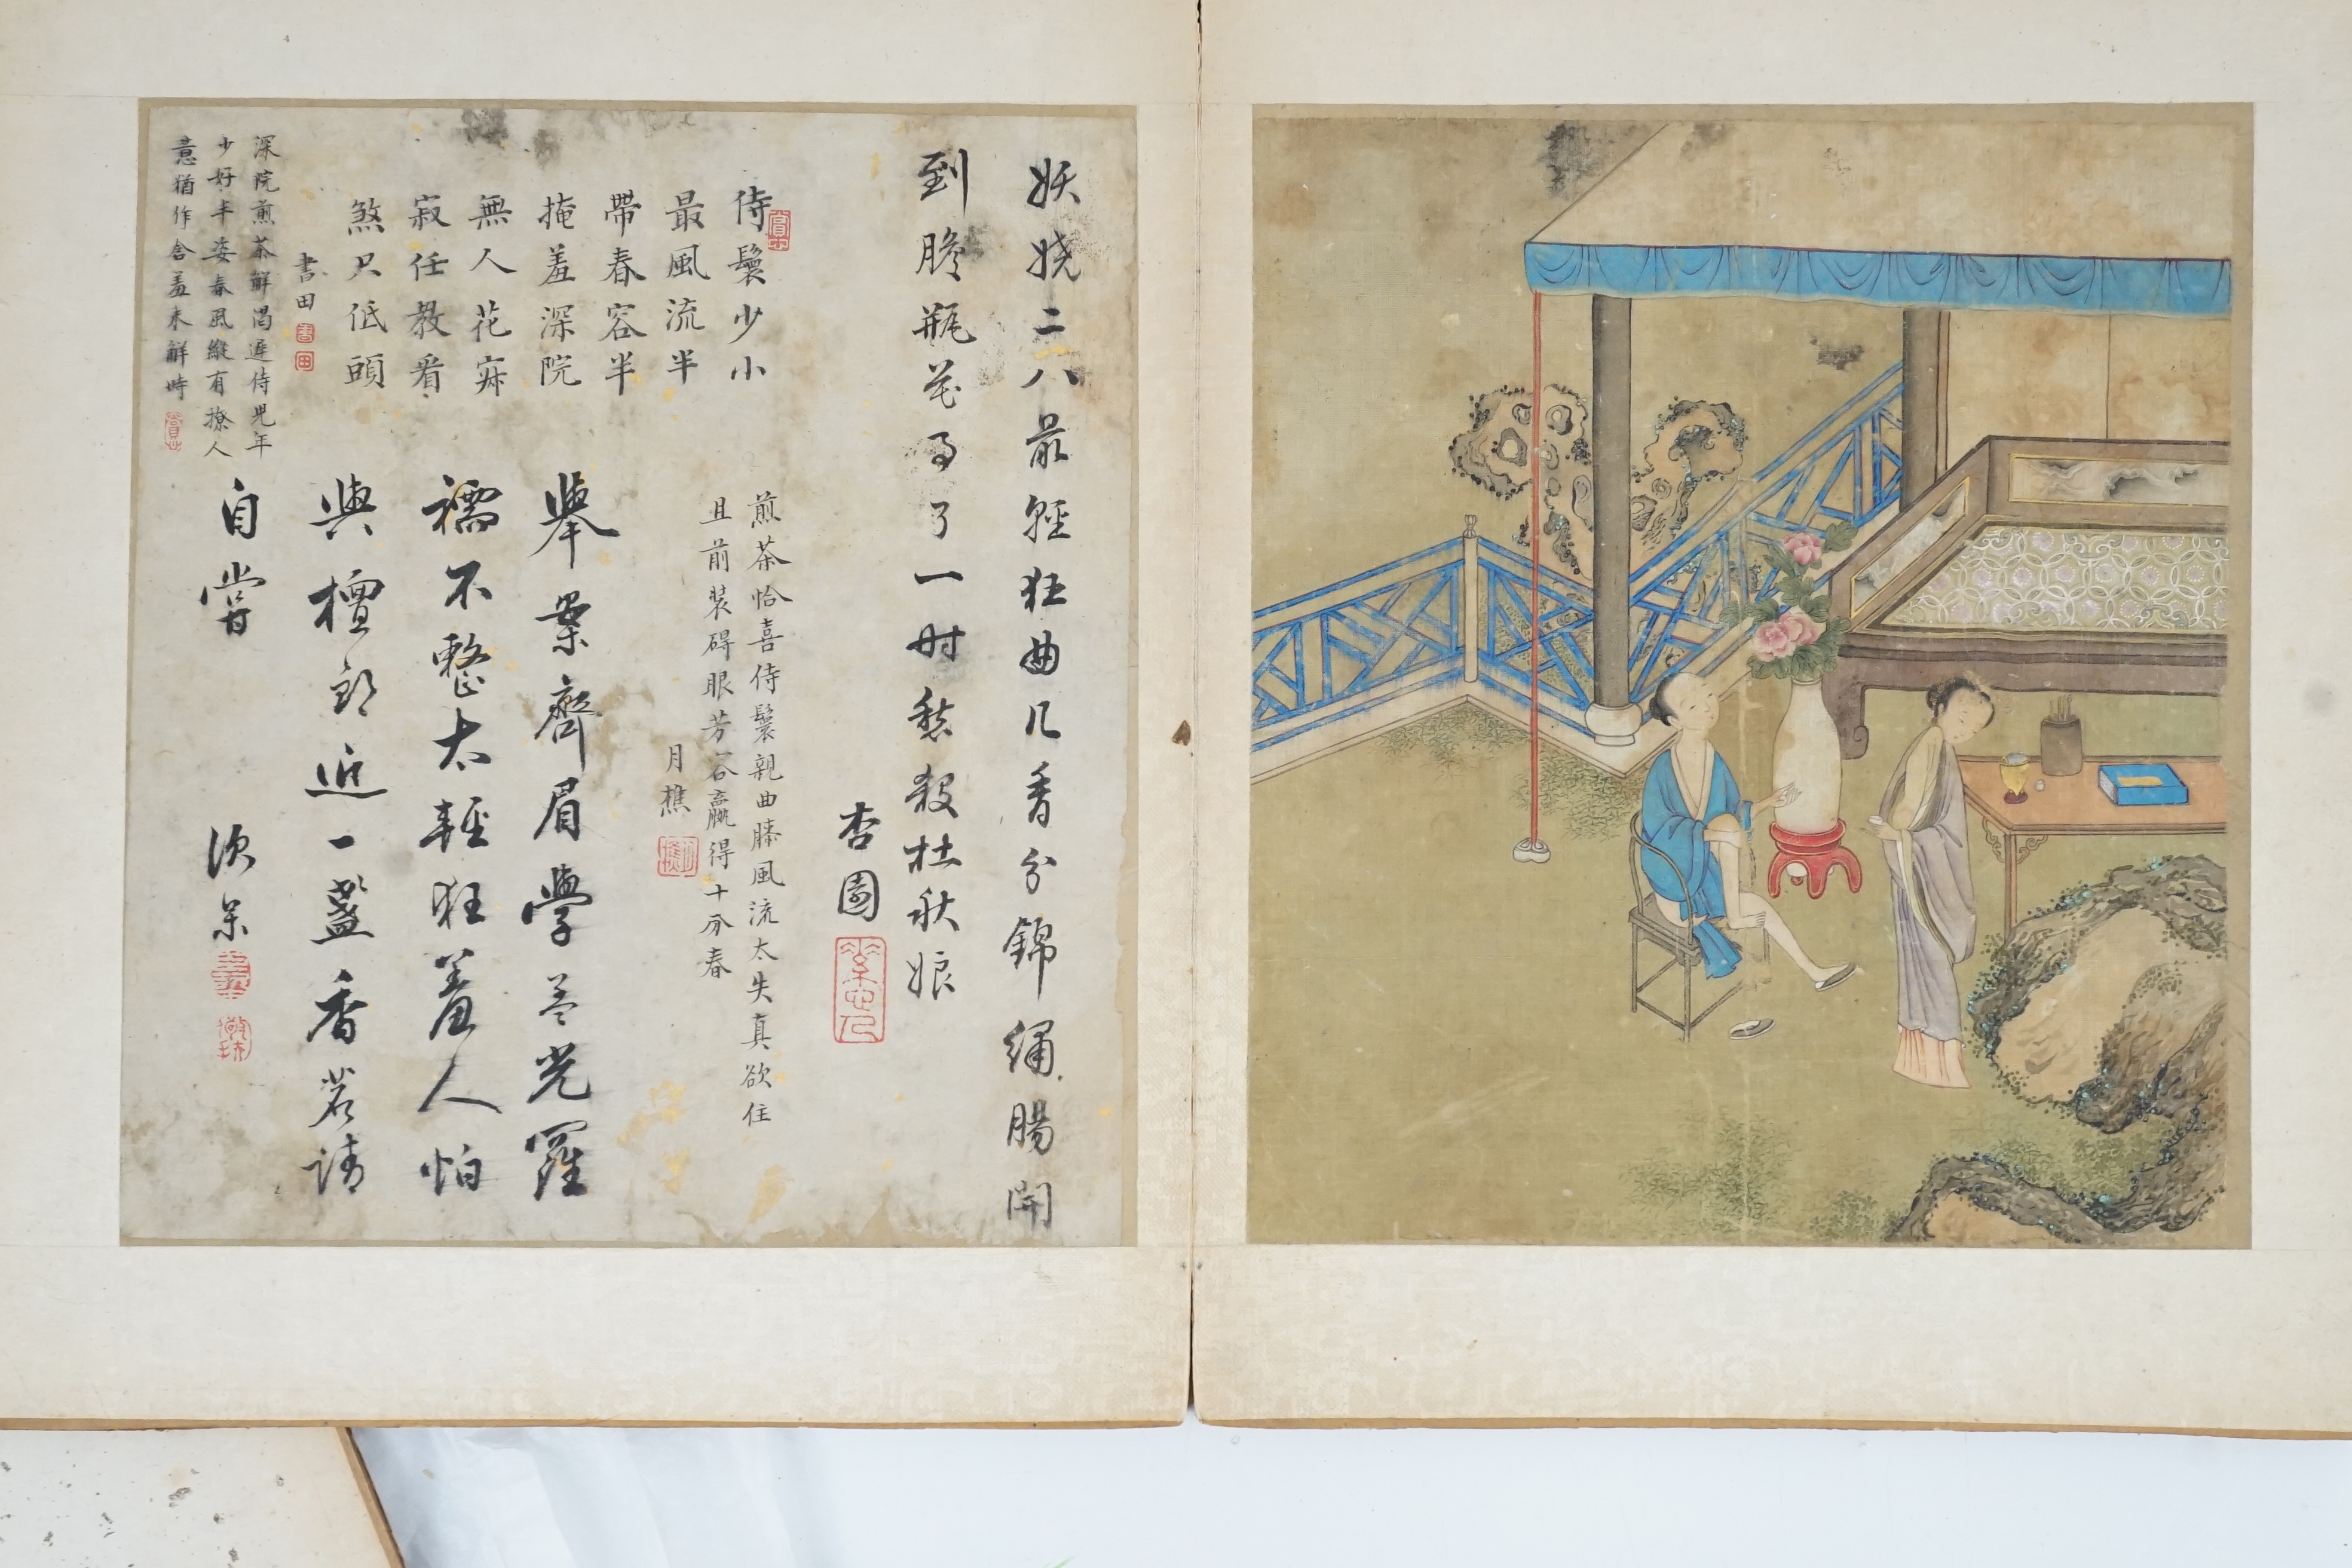 妖嬈二八最輕狂曲几香分錦繡腸開
到膽瓶花事了一時愁殺杜秋娘
杏園
煎茶恰喜侍鬟親曲膝風流太失真欲住
且前裝碍眼芳容贏得十分春
月樵
侍鬟少小
最風流半
帶春容半
掩羞深院
無人花寂
寂任教看
煞只低頭
書田
書
田
舉案齊眉學孟光羅
襦不整太輕狂羞人怕
與檀郎近一盞香茗請
自嘗
深院煎茶解渴遲侍兒年
少好丰姿春風縱有撩人
意猶作含羞未解時